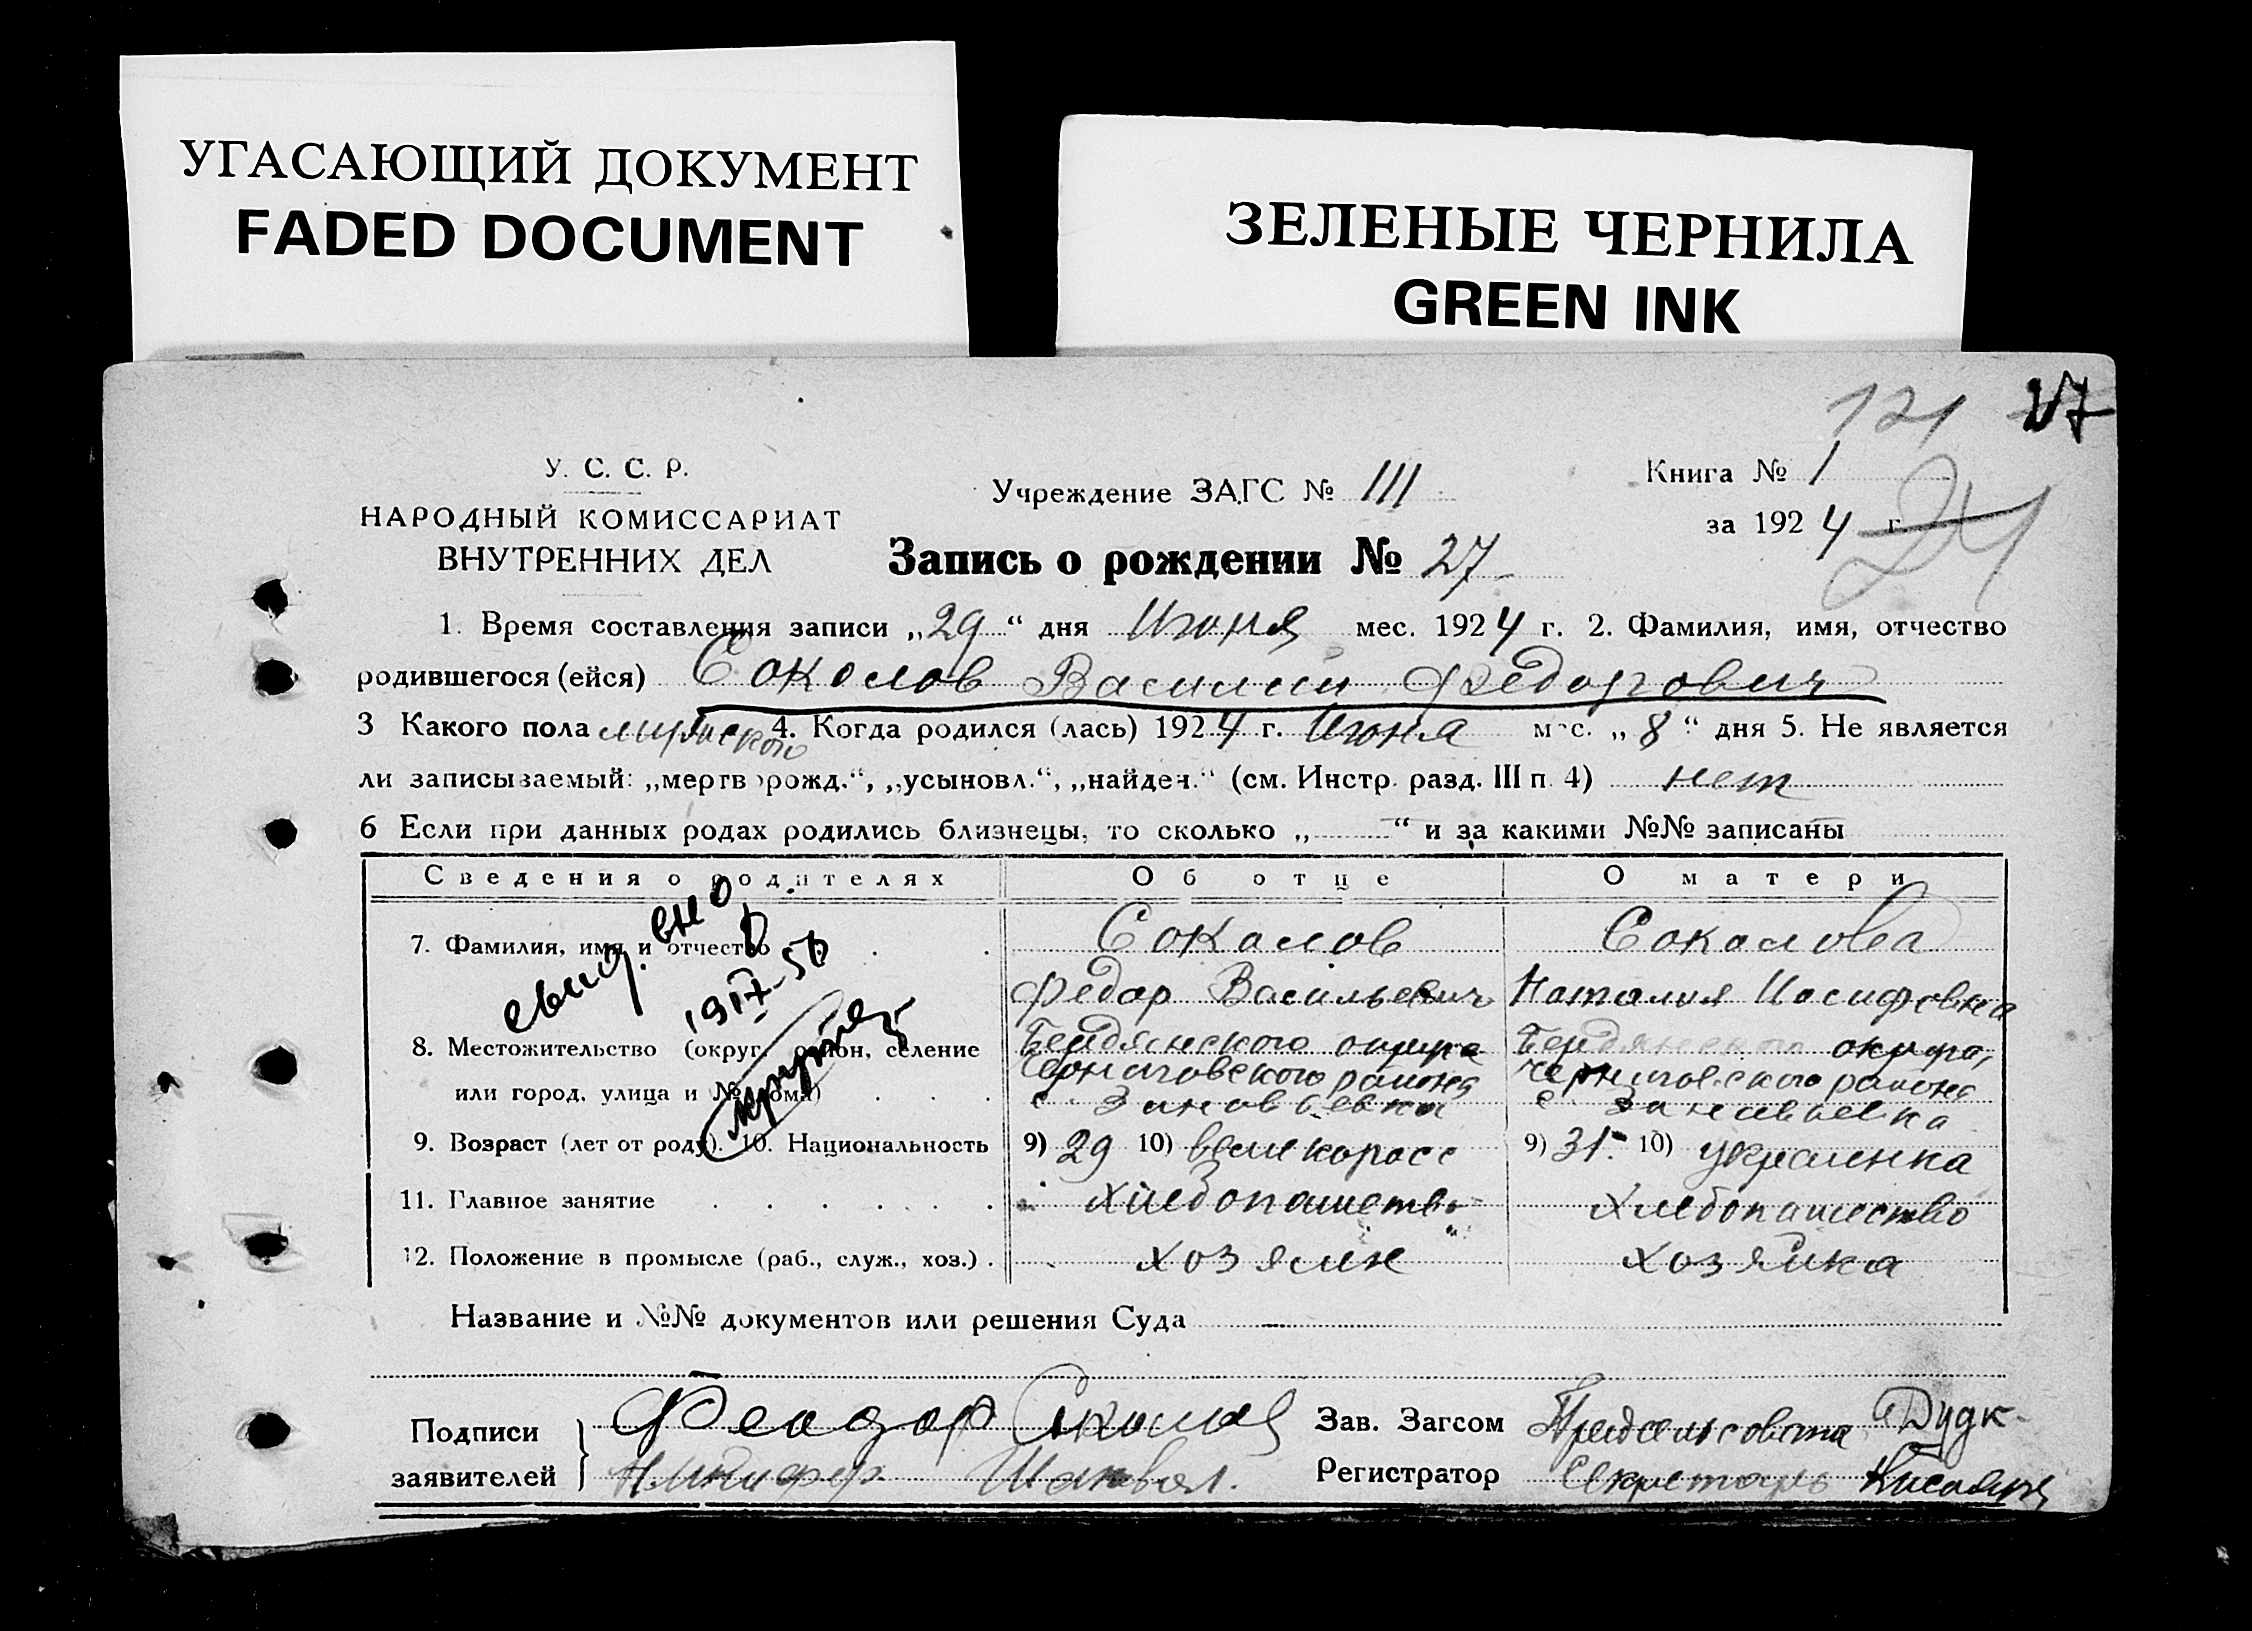 УГАСАЮЩИЙ ДОКУМЕНТ
FADED DOCUMENT
ЗЕЛЕНЫЕ ЧЕРНИЛА
GREEN INK
121 27
У. С. С. Р.
НАРОДНЫЙ КОМИССАРИАТ
ВНУТРЕННИХ ДЕЛ
Учреждение ЗАГС № III
Книга № 1
за 1924 г.
24
Запись о рождении № 27
1. Время составления записи „29“ дня Июня мес. 1924 г. 2. Фамилия, имя, отчество
родившегося (ейся) Соколов Василий Федорович
3 Какого пола мужского 4. Когда родился (лась) 1924 г. Июня мес. „8“ дня 5. Не является
ли записываемый: „мертворожд.“, „усыновл.“, „найден.“ (см. Инстр. разд. III п. 4) нет
6 Если при данных родах родились близнецы, то сколько „ “ и за какими №№ записаны
Сведения о родителях Об отце О матери
7. Фамилия, имя и отчество Соколов Соколова
Федор Васильевич Наталия Иосифовна
8. Местожительство (округ, район, селение Бердянского округа Бердянского округа,
или город, улица и № дома) Черниговского района Черниговского района
с. Зиновьевка с. Зиновьевка
9. Возраст (лет от роду). 10. Национальность 9) 29 10) великоросс 9) 31. 10) украинка
11. Главное занятие хлебопашество Хлебопашество
12. Положение в промысле (раб., служ., хоз.) хозяин хозяйка
свид. вно
19 IX-50
Название и №№ документов или решения Суда —
Подписи заявителей Феодор Соколов
Никифор
Зав. Загсом Предсельсовета Дудк-
Регистратор Секретарь